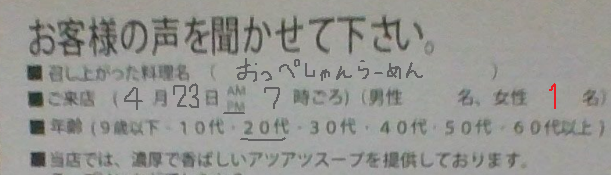 お客様の声を聞かせて下さい。
■召し上がった料理名（ おっぺしゃんらーめん ）
■ご来店（4月23日 AM PM 7時ごろ）（男性 名、女性 1 名）
■年齢（9歳以下・10代・20代・30代・40代・50代・60代以上）
■当店では、濃厚で香ばしいアツアツスープを提供しております。